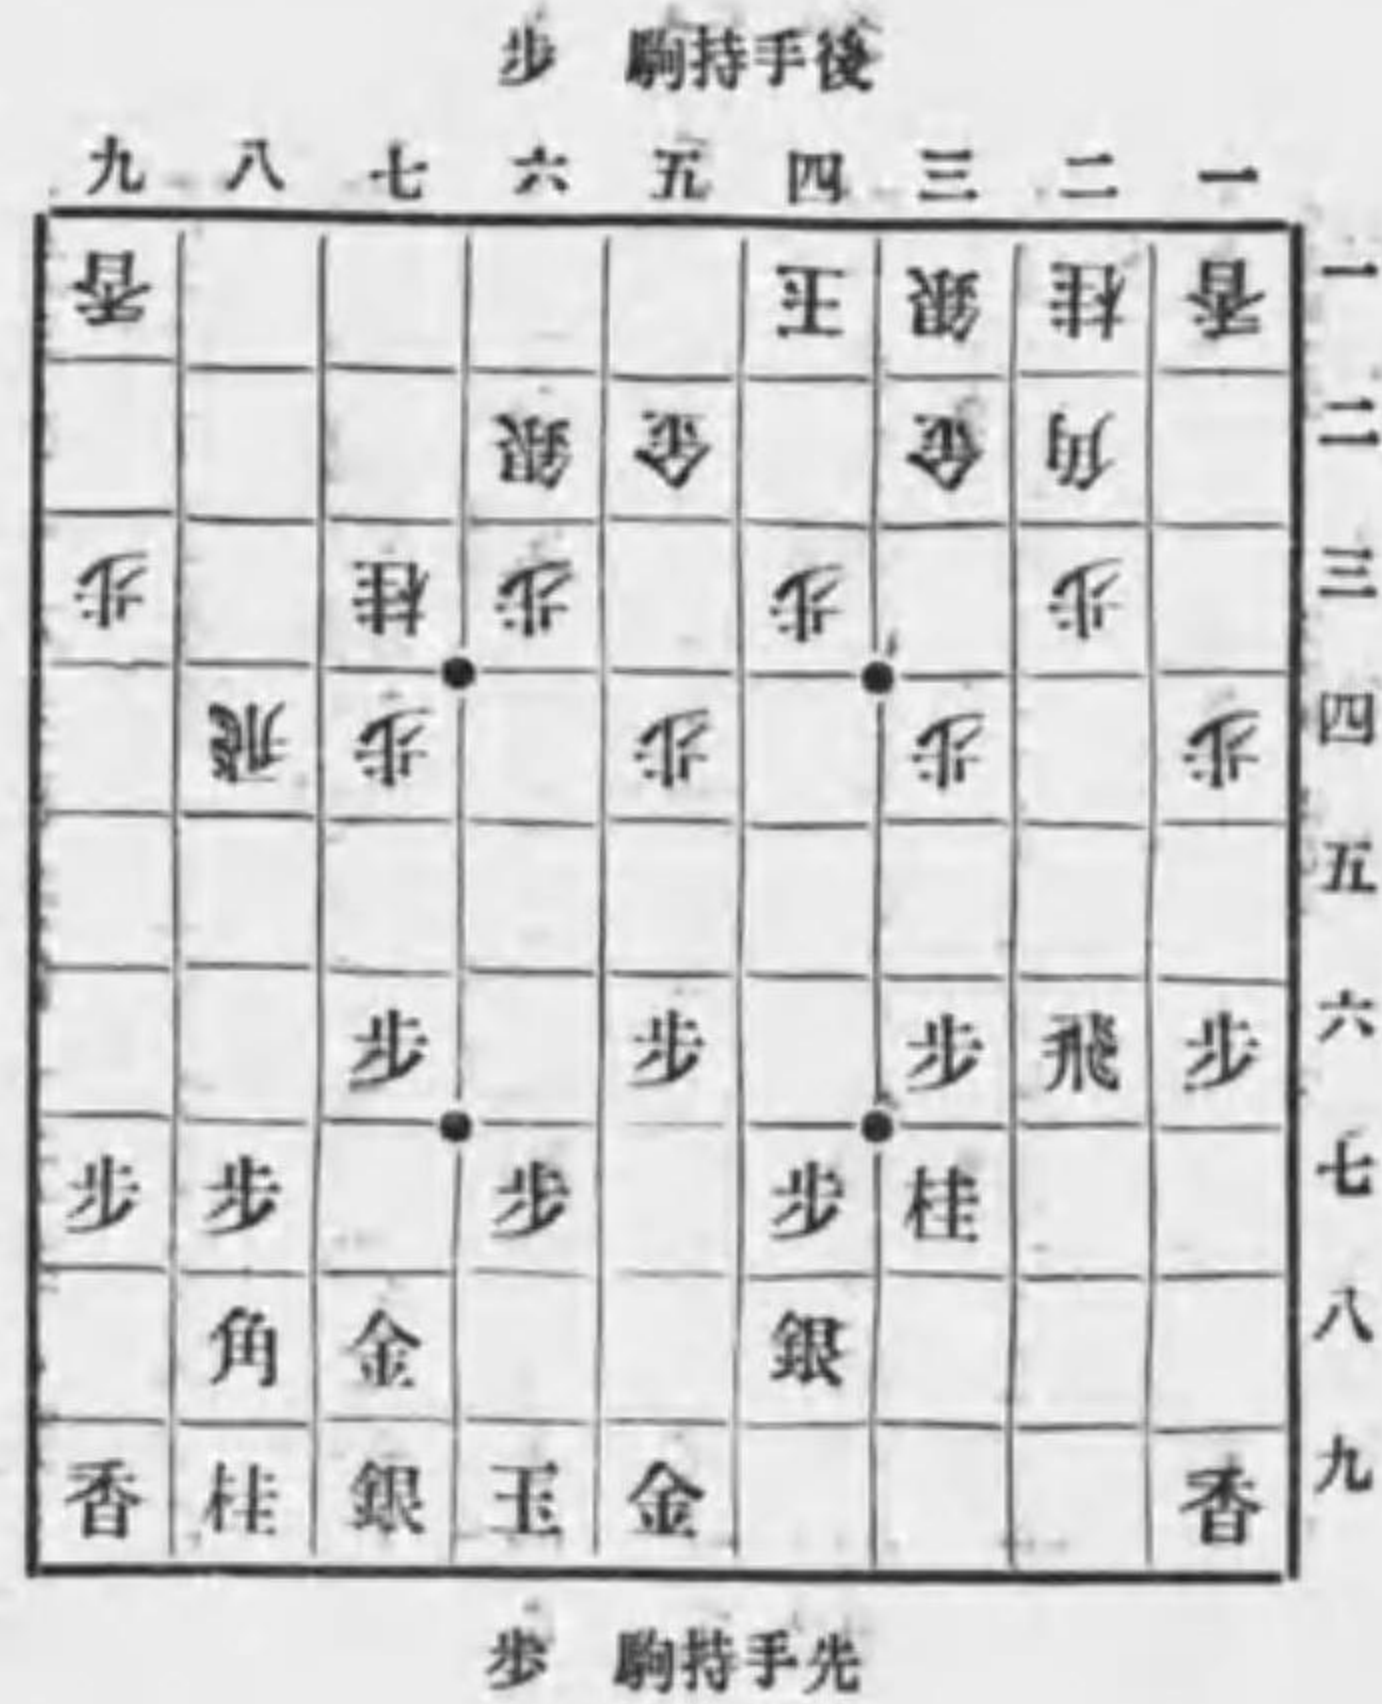 步　駒持手後
九 八 七 六 五 四 三 二 一
香 玉 銀 桂 香 一
銀 金 金 角 二
步 桂 步 步 步 三
飛 步 步 步 步 四
五
步 步 步 飛 步 六
步 步 步 步 桂 七
角 金 銀 八
香 桂 銀 玉 金 香 九
步　駒持手先